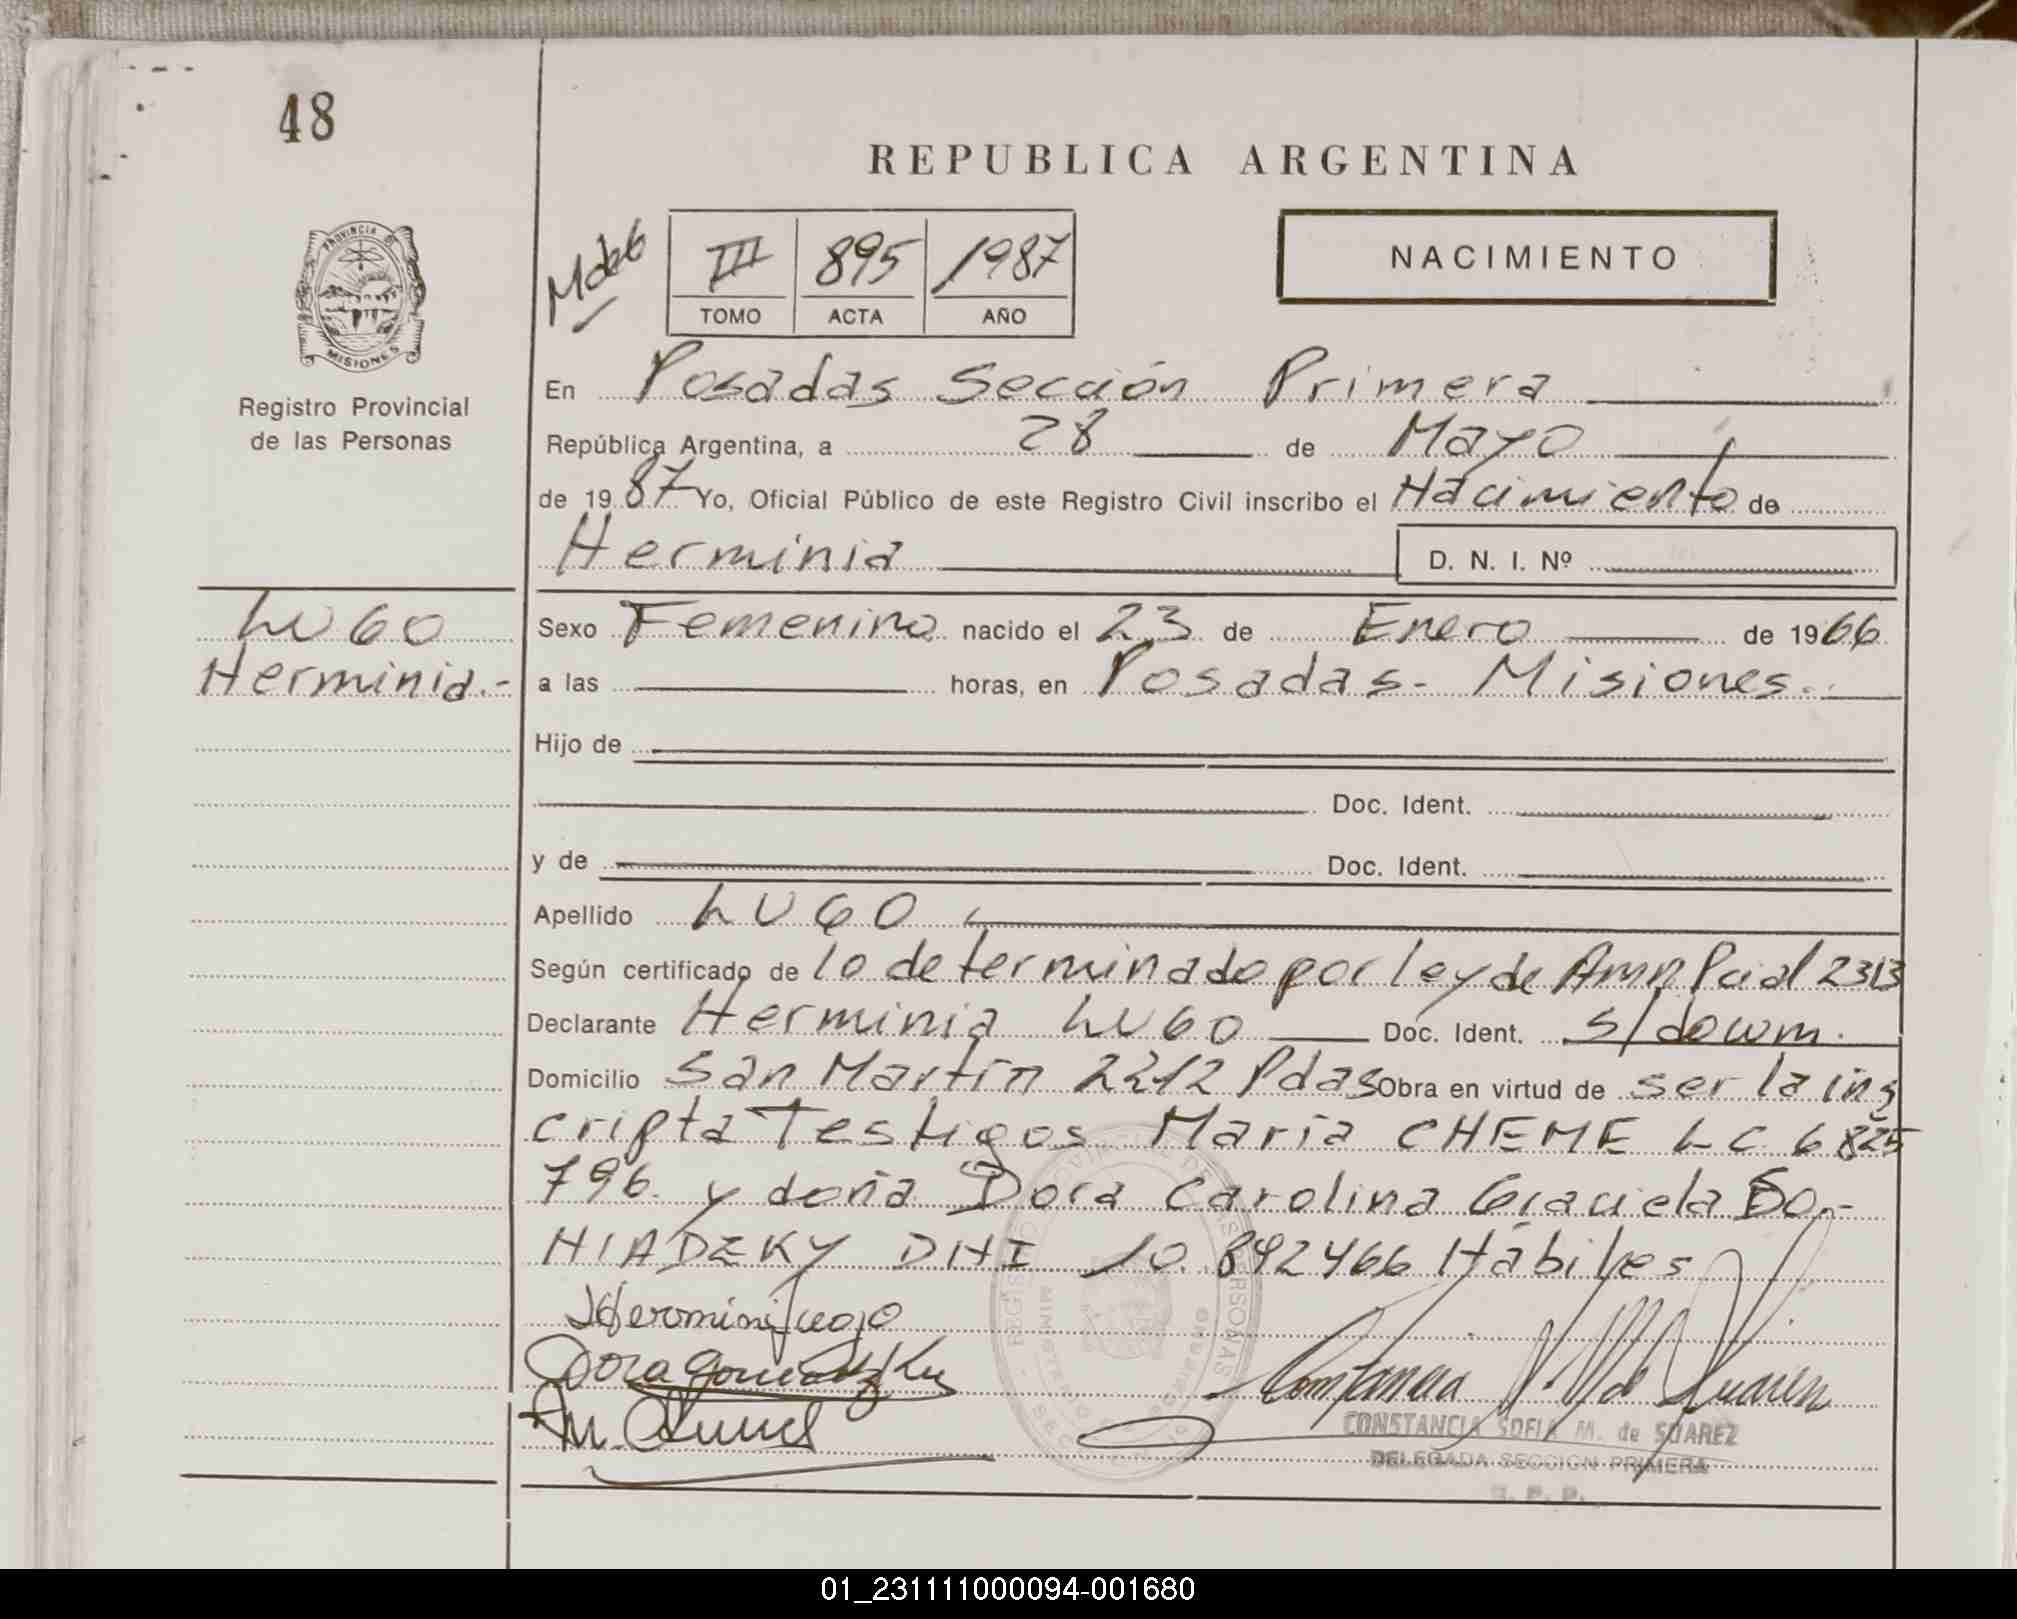 48
REPUBLICA ARGENTINA
PROVINCIA DE
MISIONES
III 895 1987
TOMO ACTA AÑO
NACIMIENTO
Registro Provincial
de las Personas
En Posadas Sección Primera
República Argentina, a 28 de Mayo
de 1987 Yo, Oficial Público de este Registro Civil inscribo el Nacimiento de
Herminia D. N. I. Nº
LUGO
Herminia.-
Sexo Femenino nacido el 23 de Enero de 1966
a las horas, en Posadas - Misiones.
Hijo de
Doc. Ident.
y de Doc. Ident.
Apellido LUGO
Según certificado de lo determinado por ley de Amn Pcial 2313
Declarante Herminia LUGO Doc. Ident. s/docum.
Domicilio San Martín 2212 Pdas Obra en virtud de ser la ins
cripta Testigos María CHEME LC 6 825
796 y doña Dora Carolina Graciela GO-
NIADZKY DNI 10.892466 Hábiles
Herminia Lugo
Dora
CONSTANCIA SOFIA M. de SUAREZ
DELEGADA SECCION PRIMERA
R. P. P.
01_231111000094-001680